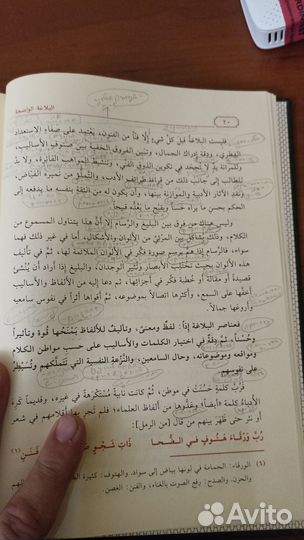 البلاغة الواضحة
٢٠
فليست البلاغة قبل كل شيء إلا فناً من الفنون، يعتمد على صفاء الاستعداد
الفطري، ودقة إدراك الجمال، وتبين الفروق الخفية بين صنوف الأساليب،
وللمرانة يد لا تجحد في تكوين الذوق الفني، وتنشيط المواهب الفاترة، ولا بد
للطالب إلى جانب ذلك من قراءة طرائف الأدب، والتملؤ من نميره الفياض،
ونقد الآثار الأدبية والموازنة بينها، وأن يكون له من الثقة بنفسه ما يدفعه إلى
الحكم بحسن ما يراه حسناً وبقبح ما يعده قبيحاً.
وليس هناك من فرق بين البليغ والرسام إلا أن هذا يتناول المسموع من
الكلام، وذلك يشاكل بين المرئي من الألوان والأشكال، أما في غير ذلك فهما
سواء، فالرسام إذا هم برسم صورة فكر في الألوان الملائمة لها، ثم في تأليف
هذه الألوان بحيث تختلب الأبصار وتثير الوجدان، والبليغ إذا أراد أن ينشئ
قصيدة أو مقالة أو خطبة فكر في أجزائها، ثم دعا إليه من الألفاظ والأساليب
أخفها على السمع، وأكثرها اتصالاً بموضوعه، ثم أقواها أثراً في نفوس سامعيه
وأروعها جمالاً.
فعناصر البلاغة إذاً: لفظ ومعنى، وتأليف للألفاظ يمنحها قوة وتأثيراً
وحسناً، ثم دقة في اختيار الكلمات والأساليب على حسب مواطن الكلام
ومواقعه وموضوعاته، وحال السامعين، والنزعة النفسية التي تتملكهم وتسيطر
على نفوسهم
فرب كلمة حسنت في موطن، ثم كانت نابية مستكرهة في غيره، وقديماً كره
الأدباء كلمة «أيضاً» وعدوها من ألفاظ العلماء، فلم تجر بها أقلامهم في شعر
أو نثر حتى ظهر بينهم من قال [من الرمل]:
رب ورقاء هتوف في الضحا ذات شجو صدحت في فنن (١)
(١) الورقاء: الحمامة في لونها بياض إلى سواد. والهتوف: كثيرة
والحزن. والصدح: رفع الصوت بالغناء، والفنن: الغصن.
Avito